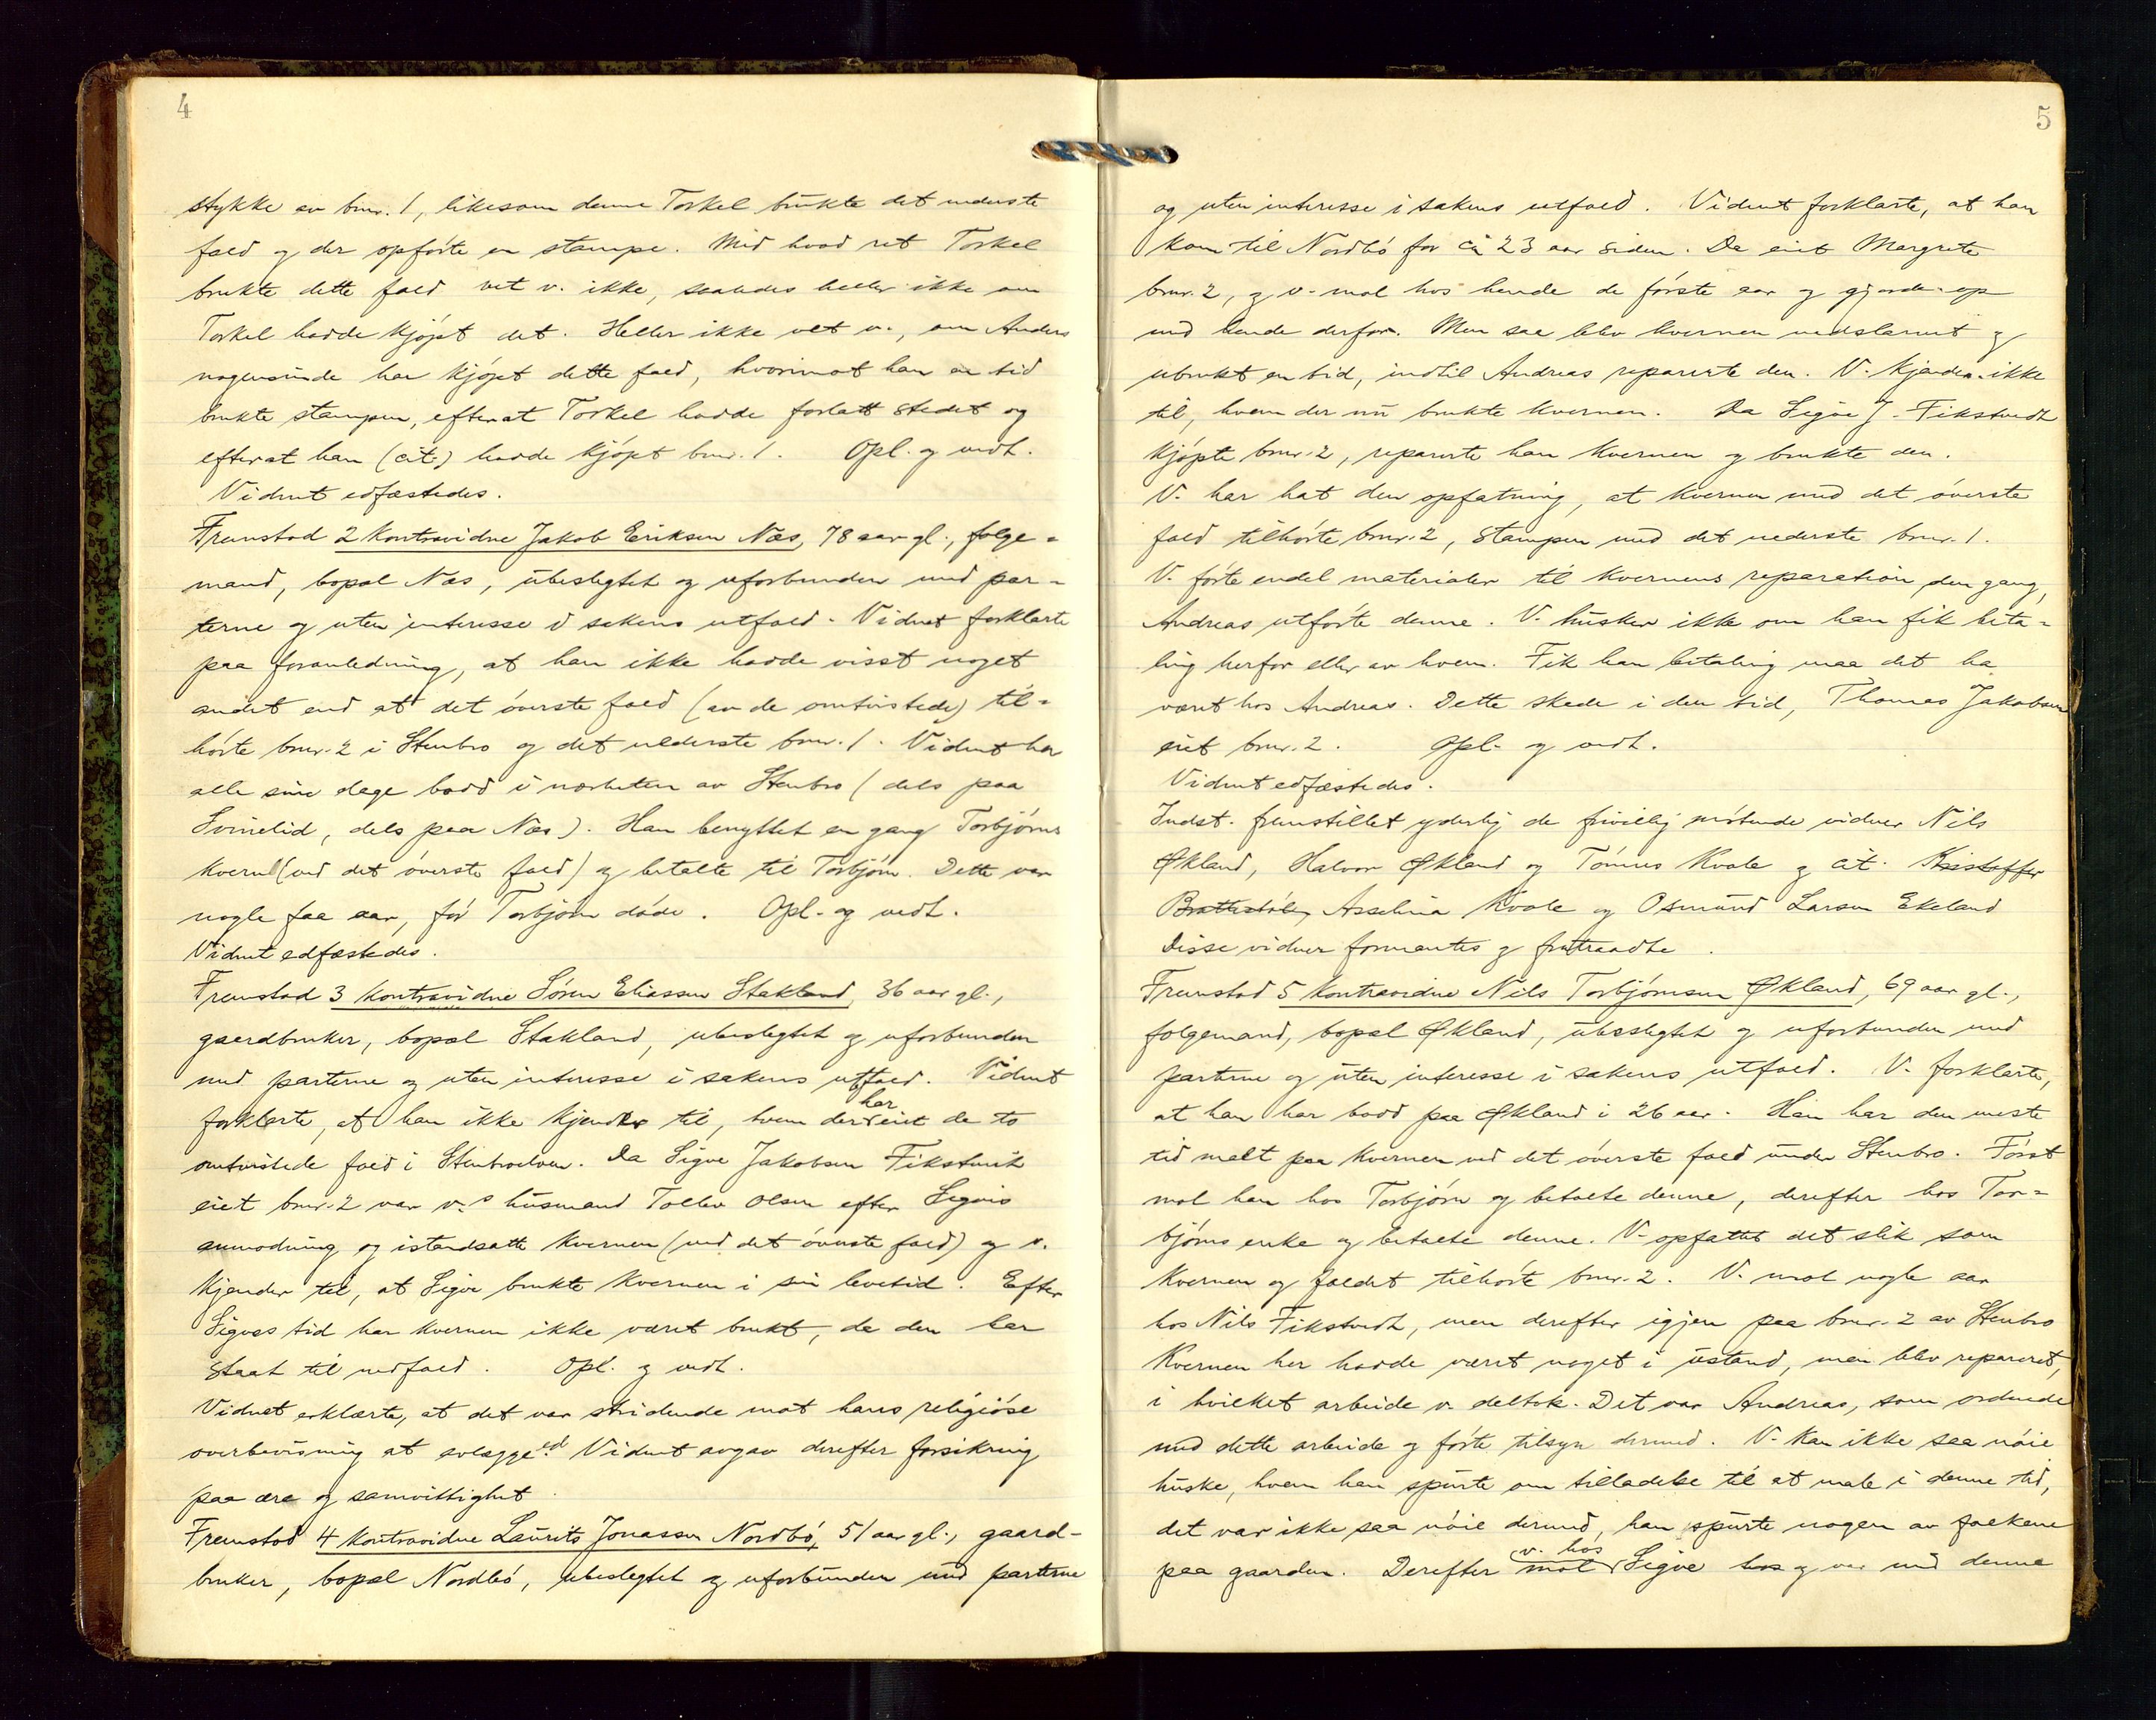 4
stykke av bnr. 1, likesom denne Torkel brukte det nederste
fald og der opførte en stampe. Med hvad ret Torkel
brukte dette fald vet v. ikke, saaledes heller ikke om
Torkel hadde kjøpt det. Heller ikke vet v., om Anders
nogensinde har kjøpt dette fald, hvorimot han en tid
brukte stampen, efterat Torkel hadde forlatt stedet og
efterat han (cit.) hadde kjøpt bnr. 1. Opl. og vedt.
Vidnet edfæstedes.
Fremstod 2 kontravidne Jakob Eriksen Næs, 78 aar gl., folge-
mand, bopæl Næs, ubeslegtet og uforbunden med par-
terne og uten interesse i sakens utfald. Vidnet forklarte
paa foranledning, at han ikke hadde visst noget
andet end at det øverste fald (av de omtvistede) til-
hørte bnr. 2 i Stenbro og det nederste bnr. 1. Vidnet har
alle sine dage bodd i nærheten av Stenbro (dels paa
Svinelid, dels paa Næs). Han benyttet en gang Torbjørns
kvern (ved det øverste fald) og betalte til Torbjørn. Dette var
nogle faa aar, før Torbjørn døde. Opl. og vedt.
Vidnet edfæstedes.
Fremstod 3 kontravidne Søren Eliassen Stakland, 36 aar gl.,
gaardbruker, bopæl Stakland, ubeslegtet og uforbunden
med parterne og uten interesse i sakens utfald. Vidnet
forklarte, at han ikke kjender til, hvem der har eiet de to
omtvistede fald i Stenbroelven. Da Sigve Jakobsen Fikstveit
eiet bnr. 2 var v.s husmand Tollev Olsen efter Sigves
anmodning og istandsatte kvernen (ved det øverste fald) og v.
kjender til, at Sigve brukte kvernen i sin levetid. Efter
Sigves tid har kvernen ikke været brukt, da den har
staat til nedfald. Opl. og vedt.
Vidnet erklærte, at det var stridende mot hans religiøse
overbevisning at avlægge ed. Vidnet avgav derefter forsikring
paa ære og samvittighet.
Fremstod 4 kontravidne Laurits Jonassen Nordbø, 51 aar gl., gaard-
bruker, bopæl Nordbø, ubeslegtet og uforbunden med parterne
5
og uten interesse i sakens utfald. Vidnet forklarte, at han
kom til Nordbø for ca 23 aar siden. Da eiet Margrete
bnr. 2, og v. mol hos hende de første aar og gjorde op
med hende derfor. Men saa blev kvernen nedslamt og
ubrukt en tid, indtil Andreas reparerte den. V. kjender ikke
til, hvem der nu brukte kvernen. Da Sigve J. Fikstvedt
kjøpte bnr. 2, reparerte han kvernen og brukte den.
V. har hat den opfatning, at kvernen med det øverste
fald tilhørte bnr. 2, stampen med det nederste bnr. 1.
V. førte endel materialer til kvernens reparation den gang,
Andreas utførte denne. V. husker ikke om han fik beta-
ling herfor eller av hvem. Fik han betaling maa det ha
været hos Andreas. Dette skede i den tid, Thomas Jakobsen
eiet bnr. 2. Opl. og vedt.
Vidnet edfæstedes.
Indst. fremstillet yderlig de frivillig møtende vidner Nils
Økland, Halvor Økland og Tønnes Kvale og cit. Kristoffer
Brattestøle, Asselina Kvale og Osmund Larsen Ekeland
Disse vidner formantes og fratraadte.
Fremstod 5 kontravidne Nils Torbjørnsen Økland, 69 aar gl.,
folgemand, bopæl Økland, ubeslegtet og uforbunden med
parterne og uten interesse i sakens utfald. V. forklarte,
at han har bodd paa Økland i 26 aar. Han har den meste
tid malt paa kvernen ved det øverste fald under Stenbro. Først
mol han hos Torbjørn og betalte denne, derefter hos Tor-
bjørns enke og betalte denne. V. opfattet det slik som
kvernen og faldet tilhørte bnr. 2. V. mol nogle aar
hos Nils Fikstvedt, men derefter igjen paa bnr. 2 av Stenbro
Kvernen her hadde været noget i ustand, men blev reparert,
i hvilket arbeide v. deltok. Det var Andreas, som ordnede
med dette arbeide og førte tilsyn dermed. V. kan ikke saa nøie
huske, hvem han spurte om tilladelse til at male i denne tid,
det var ikke saa nøie dermed, han spurte nogen av folkene
paa gaarden. Derefter mol v. hos Sigve hos og var med denne